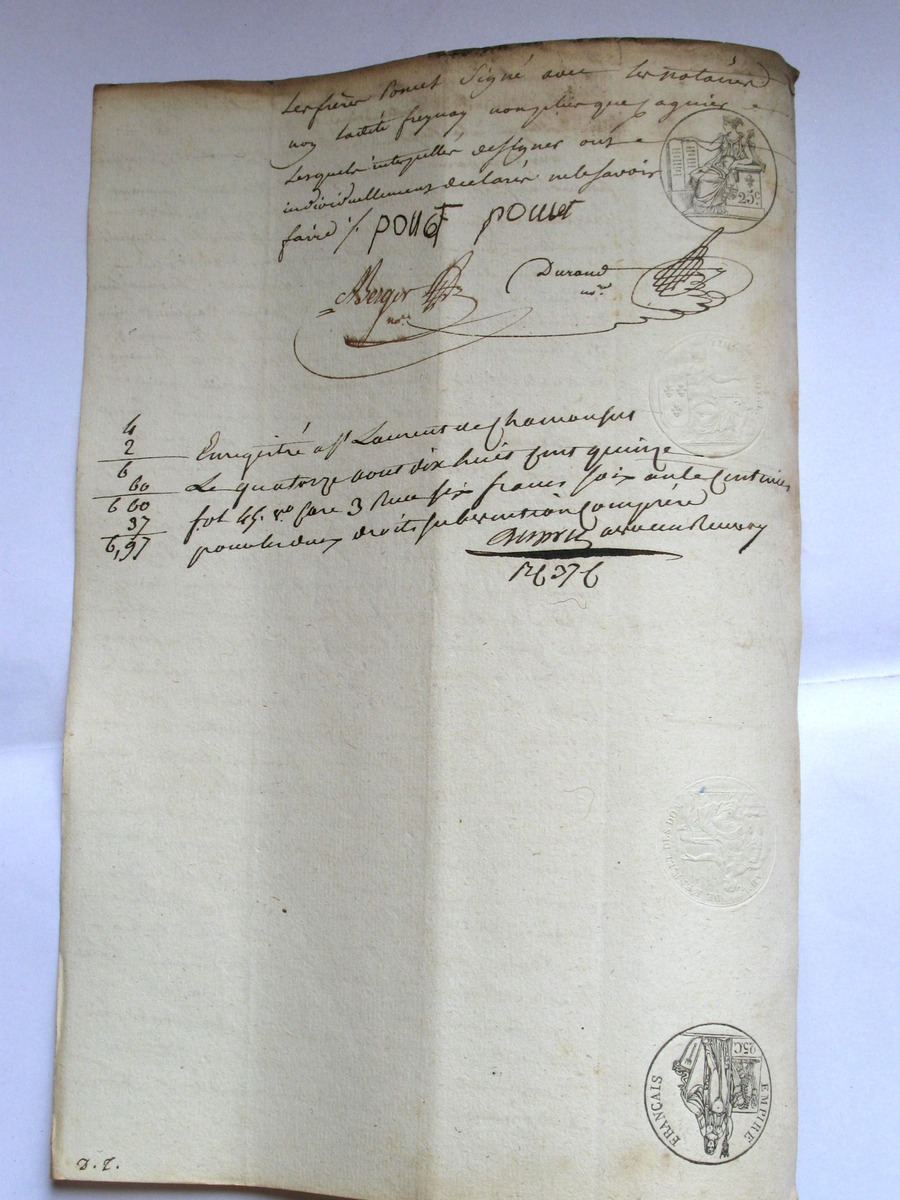 Les frères Poncet Signé avec les notaires
non ladite freynay non plus que
Lesquels interpellés de signer ont
individuellement déclarés ne le Savoir
faire /. poncet poncet
Berger Durand
nore nore
4
2
6
60
6 60
37
6,97
Enregistré a St Laurent de Chamousset
Le quatorze aout dix huit cent quinze
fol 45 vo Case 3 Reçu six francs soixante centimes
pour les deux droits subvention comprise
25c
D. T.
EMPIRE FRANÇAIS
25C